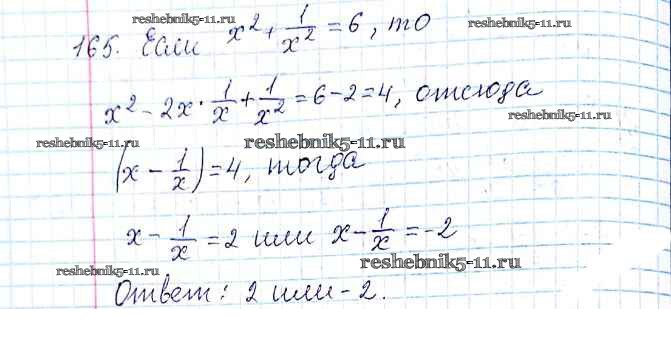 reshebnik5-11.ru
165. Если x² + 1/x² = 6, то
reshebnik5-11.ru
x² - 2x · 1/x + 1/x² = 6 - 2 = 4, отсюда
reshebnik5-11.ru
reshebnik5-11.ru reshebnik5-11.ru
(x - 1/x) = 4, тогда
x - 1/x = 2 или x - 1/x = -2
reshebnik5-11.ru
reshebnik5-11.ru
Ответ: 2 или -2.